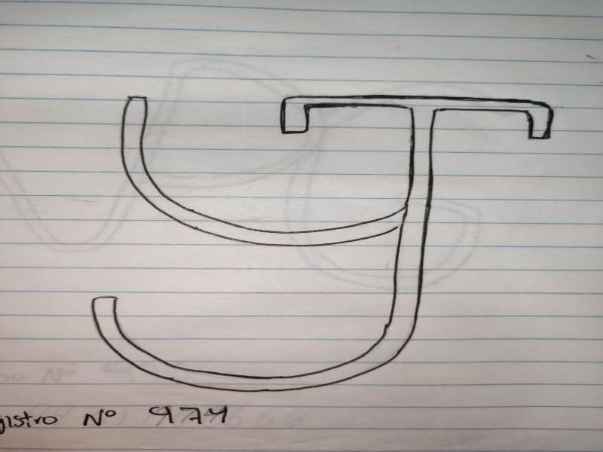 gistro Nº 974